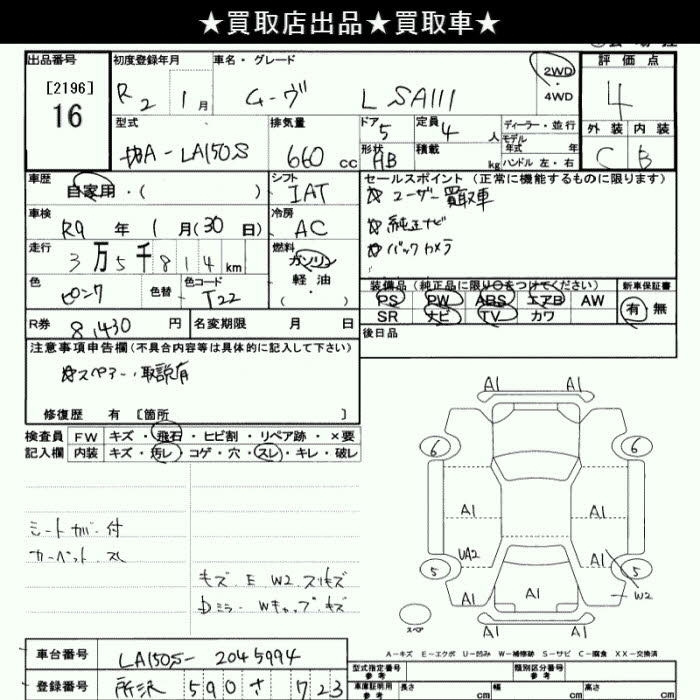 ★買取店出品★買取車★
出品番号 初度登録年月 車名・グレード 評価点
[2196]
16
R2 1月 ムーヴ L SAIII 2WD・4WD 4
型式 排気量 ドア 定員 ディーラー・並行 外装 内装
LA150S 660cc 5 4人 モデル年式 年 C B
形状 積載 ハンドル 左・右
kg
車歴 シフト セールスポイント(正常に機能するものに限ります)
自家用・( ) IAT ユーザー買取車
車検 冷房 純正ナビ
R9年 1月(30日) AC バックカメラ
走行 燃料
3万5千814km ガソリン
軽油
・( )
色 色替 色コード 装備品(純正品に限り○をつけてください) 新車保証書
ピンク T22 PS PW ABS エアB AW 有・無
SR ナビ TV カワ
R券 8,430円 名変期限 月 日 後日品
注意事項申告欄(不具合内容等は具体的に記入して下さい)
スペアー・取説有
修復歴 有 [箇所 ]
検査員 FW キズ・飛石・ヒビ割・リペア跡・×要
記入欄 内装 キズ・汚レ・コゲ・穴・スレ・キレ・破レ
A1 A1
6 6
A1 A1
シートカバー付
カーペットスレ
UA2 A1
5 5
キズ E W2 スリキズ
Dミラー Wキャップキズ
A1 A1 W2
スペア
A1 A1
A-キズ E-エクボ U-凹み W-補修跡 S-サビ C-腐食 XX-交換済
車台番号 LA150S-2045994
型式指定番号 参考 類別区分番号 参考
登録番号 所沢 590 さ 723
車庫証明用 参考 長さ cm 幅 cm 高さ cm